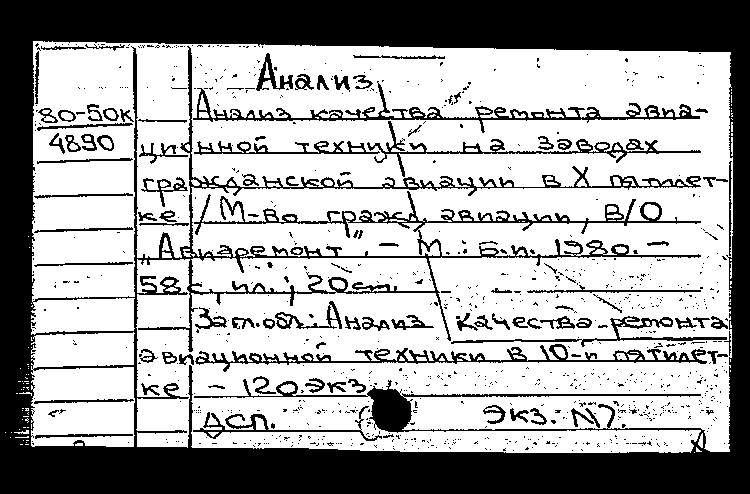 Анализ
80-50к
4890
Анализ качества ремонта авиа-
ционной техники на заводах
гражданской авиации в X пятилет-
ке / М-во гражд. авиации, В/О
„Авиаремонт". - М.: Б.и., 1980. -
58 с., ил.; 20 cm.
Загл. обл.: Анализ качества ремонта
авиационной техники в 10-й пятилет-
ке - 120 экз
ДСП. Экз. N7.